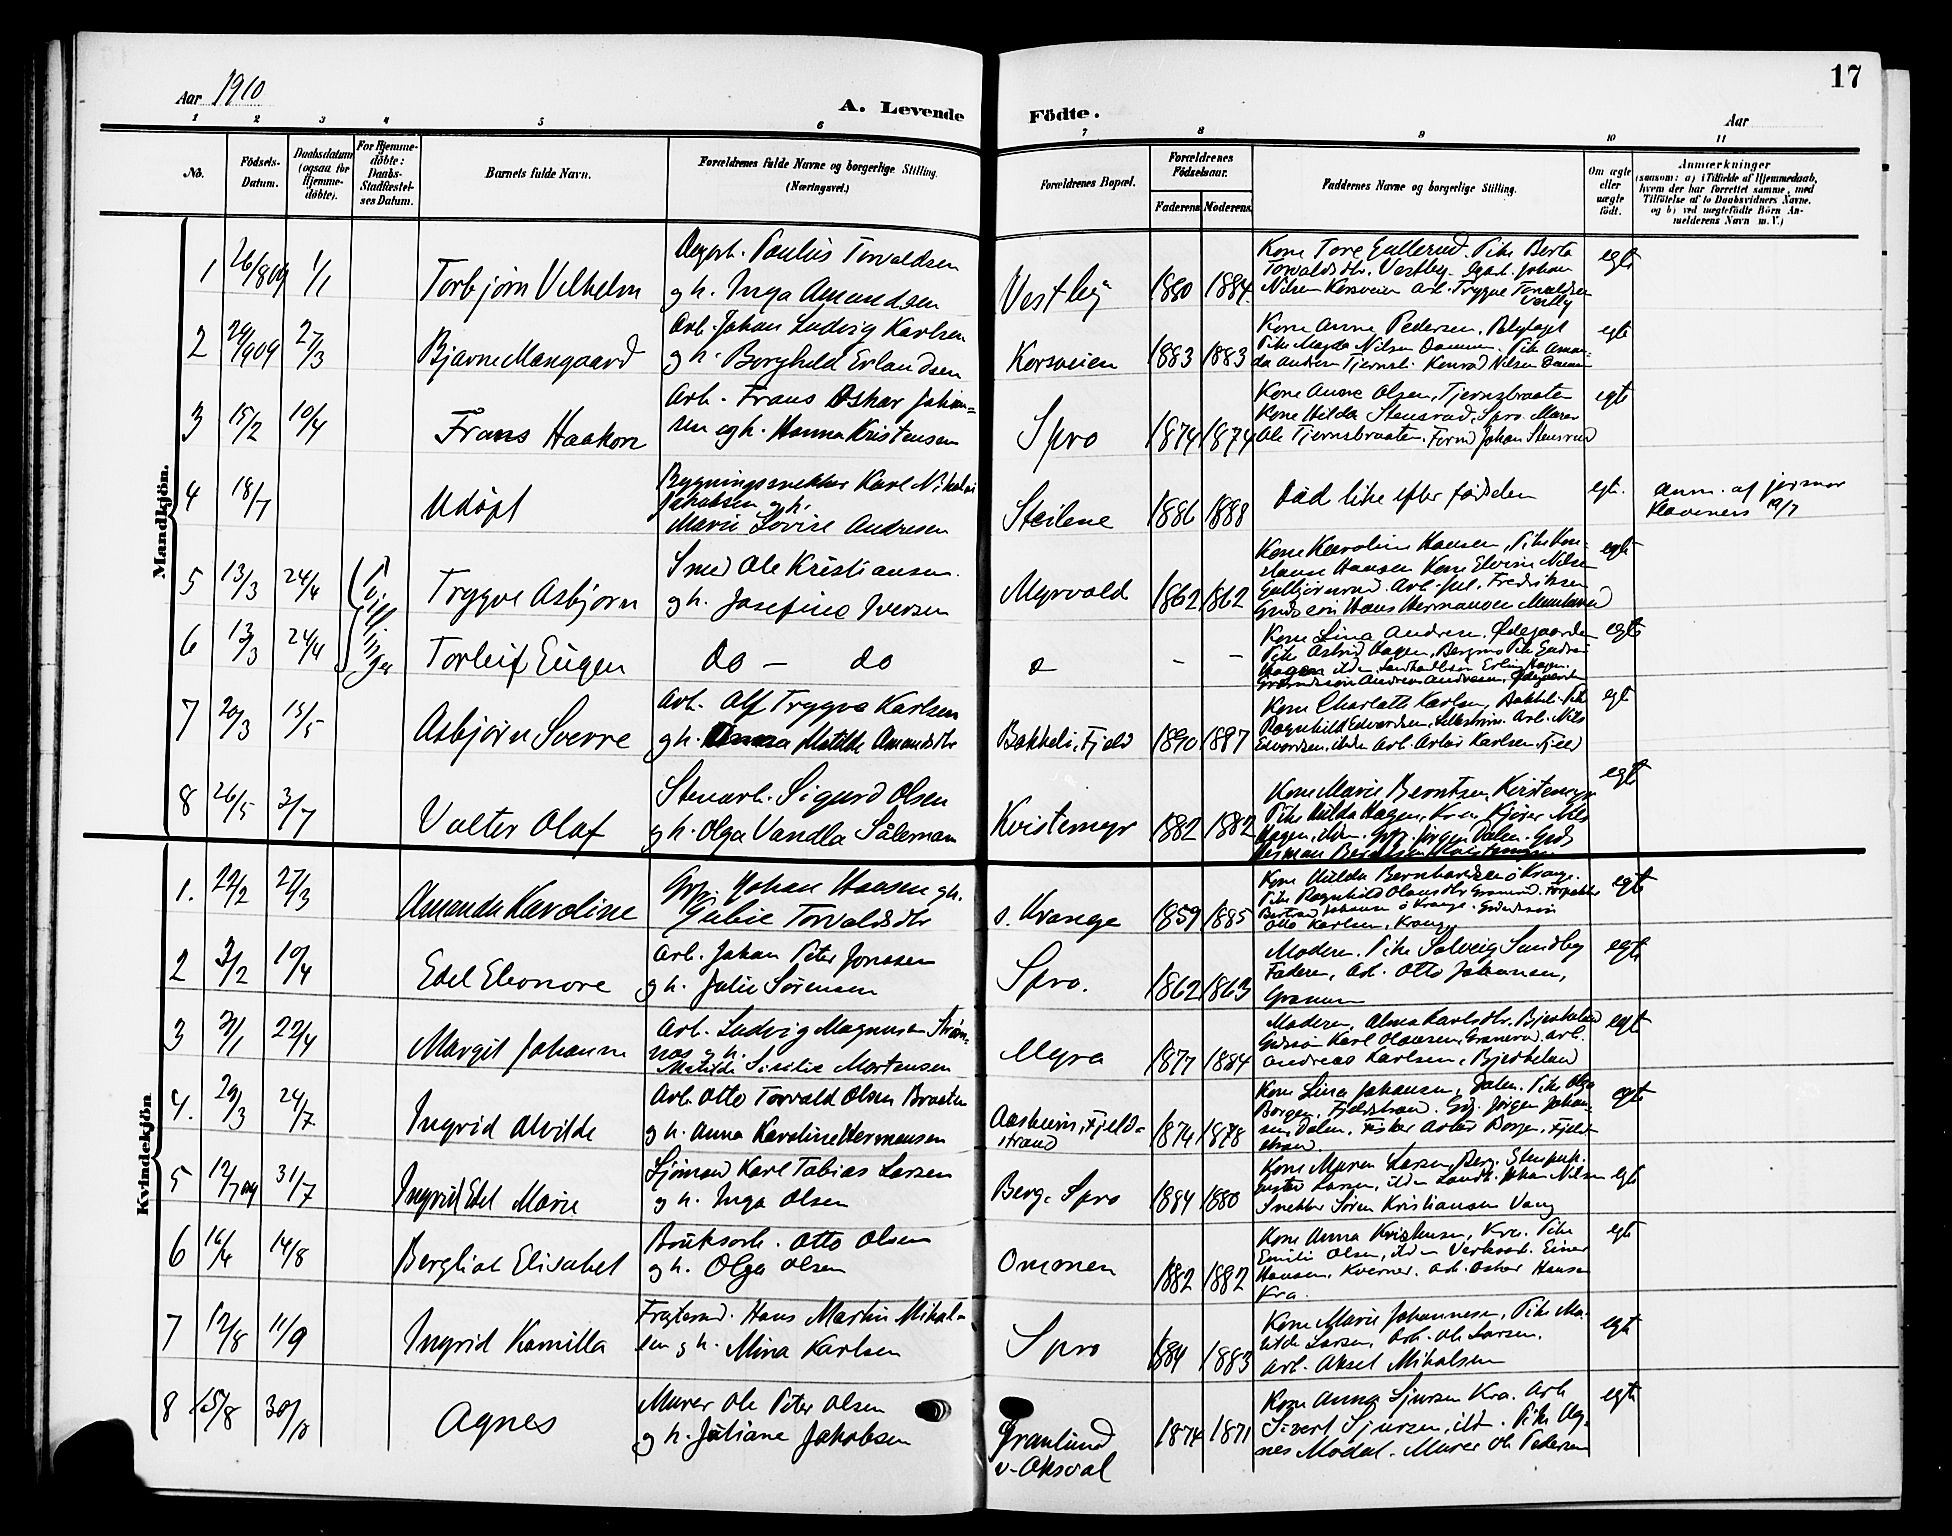 17
Aar 1910
A. Levende Fødte.
Aar
1 2 3 4 5 6 7 8 9 10 11
No.
Födsels-Datum.
Daabsdatum (ogsaa for Hjemme-döbte).
For Hjemme-döbte: Daabs-Stadfæstel-ses Datum.
Barnets fulde Navn.
Forældrenes fulde Navne og borgerlige Stilling. (Næringsvei.)
Forældrenes Bopæl.
Forældrenes Födselsaar.
Faderens Moderens
Faddernes Navne og borgerlige Stilling.
Om ægte eller uægte födt.
Anmærkninger
(saasom: a) i Tilfælde af Hjemmedaab,
hvem der har forrettet samme, med
Tilföielse af to Daabsvidners Navne,
og b) ved uægtefödte Börn An-
melderens Navn m. V.)
Mandkjön.
1 26/8 09 1/1 Torbjørn Vilhelm
Paulus Torvaldsen
g h. Inga Amundsen
Vestby 1880 1884
Kone Tore Gullerud. Pike Berta
Torvaldsdtr. Vestby. Johan
Nilsen Korsveien Arb. Trygve Torvaldsen
Vestby
egte
2 29/9 09 27/3 Bjarne Mangaard
Arb. Johan Ludvig Karlsen
g h. Borghild Erlandsen
Korsveien 1883 1883
Kone Anna Pedersen,
Pike Magda Nilsen
Konrad Nilsen
egte
3 15/2 10/4 Frans Haakon
Arb. Frans Oskar Johan-
sen og h. Hanna Kristensen
Spro 1874 1874
Kone Anne Olsen, Tjernsbraaten
Kone Hilda Stensrud, Spro. Murer
Ole Tjernsbraaten. Johan Stensrud
egte
4 18/7 Udøpt
Bygningssnekker Karl Nikolai
Jakobsen g h.
Marie Lovise Andresen
Steilene 1886 1888
Död like efter fødselen
egte.
anm. af jormor
Klaveness 19/7
5 13/3 24/4 Trygve Asbjørn
Smed Ole Kristiansen
g h. Josefine Iversen
Myrvold 1862 1862
Kone Karoline Hansen, Pike
Hansen Kone Elvine Nilsen
Arb. Jul. Fredriksen
Hans Hermansen
egte
Tvillinger
6 13/3 24/4 Torleif Eugen
do — do
— —
Kone Lina Andresen. Ødegaarden
Pike Astrid Hagen,
Erling Hagen
Andreas Andresen, Ødegaarden
egte
7 20/3 15/5 Asbjørn Sverre
Arb. Alf Trygve Karlsen
g h. Anna Matilde Amundsdtr
Bakkeli, Fjeld 1890 1887
Kone Charlotte Karlsen, Bakkeli. Pike
Ragnhild Edvardsen, Arb. Nils
Edvardsen, Arb. Artur Karlsen, Fjeld
egte
8 26/5 3/7 Valter Olaf
Stenarb. Sigurd Olsen
g h. Olga Vandla Säleman
Kvistemyr 1882 1882
Kone Marie Berntsen, Kvistemyr
Pike Hilda Hagen, Nils
Hagen, Jørgen Dalen.
Herman Berntsen, Kvistemyr
egte
Kvindekjön
1. 22/2 27/3 Amanda Karoline
Johan Hansen g h.
Gubie Torvaldsdtr
ö. Krange 1859 1885
Kone Hulda Bernhardsen ö Krange.
Pike Ragnhild Olausdtr Granerud.
Johansen ö Krange.
Otto Karlsen, Krange
egte
2 3/2 10/4 Edel Eleonore
Arb. Johan Peter Jonssen
g h. Julie Sørensen
Spro. 1862 1863
Moderen. Pike Solveig Sundby
Faderen, Arb. Otto Johannesen,
egte
3 3/1 22/4 Margit Johanne
Arb. Ludvig Magnussen Strøm-
nas g h.
Matilde Sisilie Mortensen
Myra 1877 1884
Moderen, Alma Karlsdtr. Bjerkelund
Karl Olausen, Granerud, Arb.
Andreas Karlsen, Bjerkelund
egte
4. 29/3 24/7 Ingrid Alvilde
Arb. Otto Torvald Olsen Braaten
g h. Anna Karoline Hermansen
Aasheim, Fjeld-
strand 1874 1878
Kone Lina Johansen, Dalen. Pike Olga
Borgen, Fjeldstrand. Jørgen Johan-
sen, Dalen, Fisker Borgen, Fjeld-
strand.
egte
5 12/7 09 31/7 Ingrid Edel Marie
Sjømand Karl Tobias Larsen
g h. Inga Olsen
Berg, Spro 1884 1880
Kone Maren Larsen, Berg.
Gustav Larsen, Johan Nilsen
Snekker Søren Kristiansen Vang
egte
6 16/4 14/8 Bergliot Elisabet
Bruksarb. Otto Olsen
g h. Olga Olsen
Ommen 1882 1882
Kone Anna Kristensen, Kra. Pike
Emilie Olsen, Verksarb. Einar
Hansen, Kværner. Arb. Oskar Hansen
Kra.
egte
7 12/8 11/9 Ingrid Kamilla
Hans Martin Mikal-
sen g h. Mina Karlsen
Spro 1884 1883
Kone Marie Johannesen, Pike Ma-
tilde Larsen, Arb. Ole Larsen,
Arb. Aksel Mikalsen
egte
8 15/8 30/10 Agnes
Murer Ole Peter Olsen
g h. Juliane Jakobsen
Granlund
v. Oksval 1874 1871
Kone Anna Sjursen Kra. Arb
Sivert Sjursen, Pike Ag-
nes Modal. Murer Ole Pedersen
egte